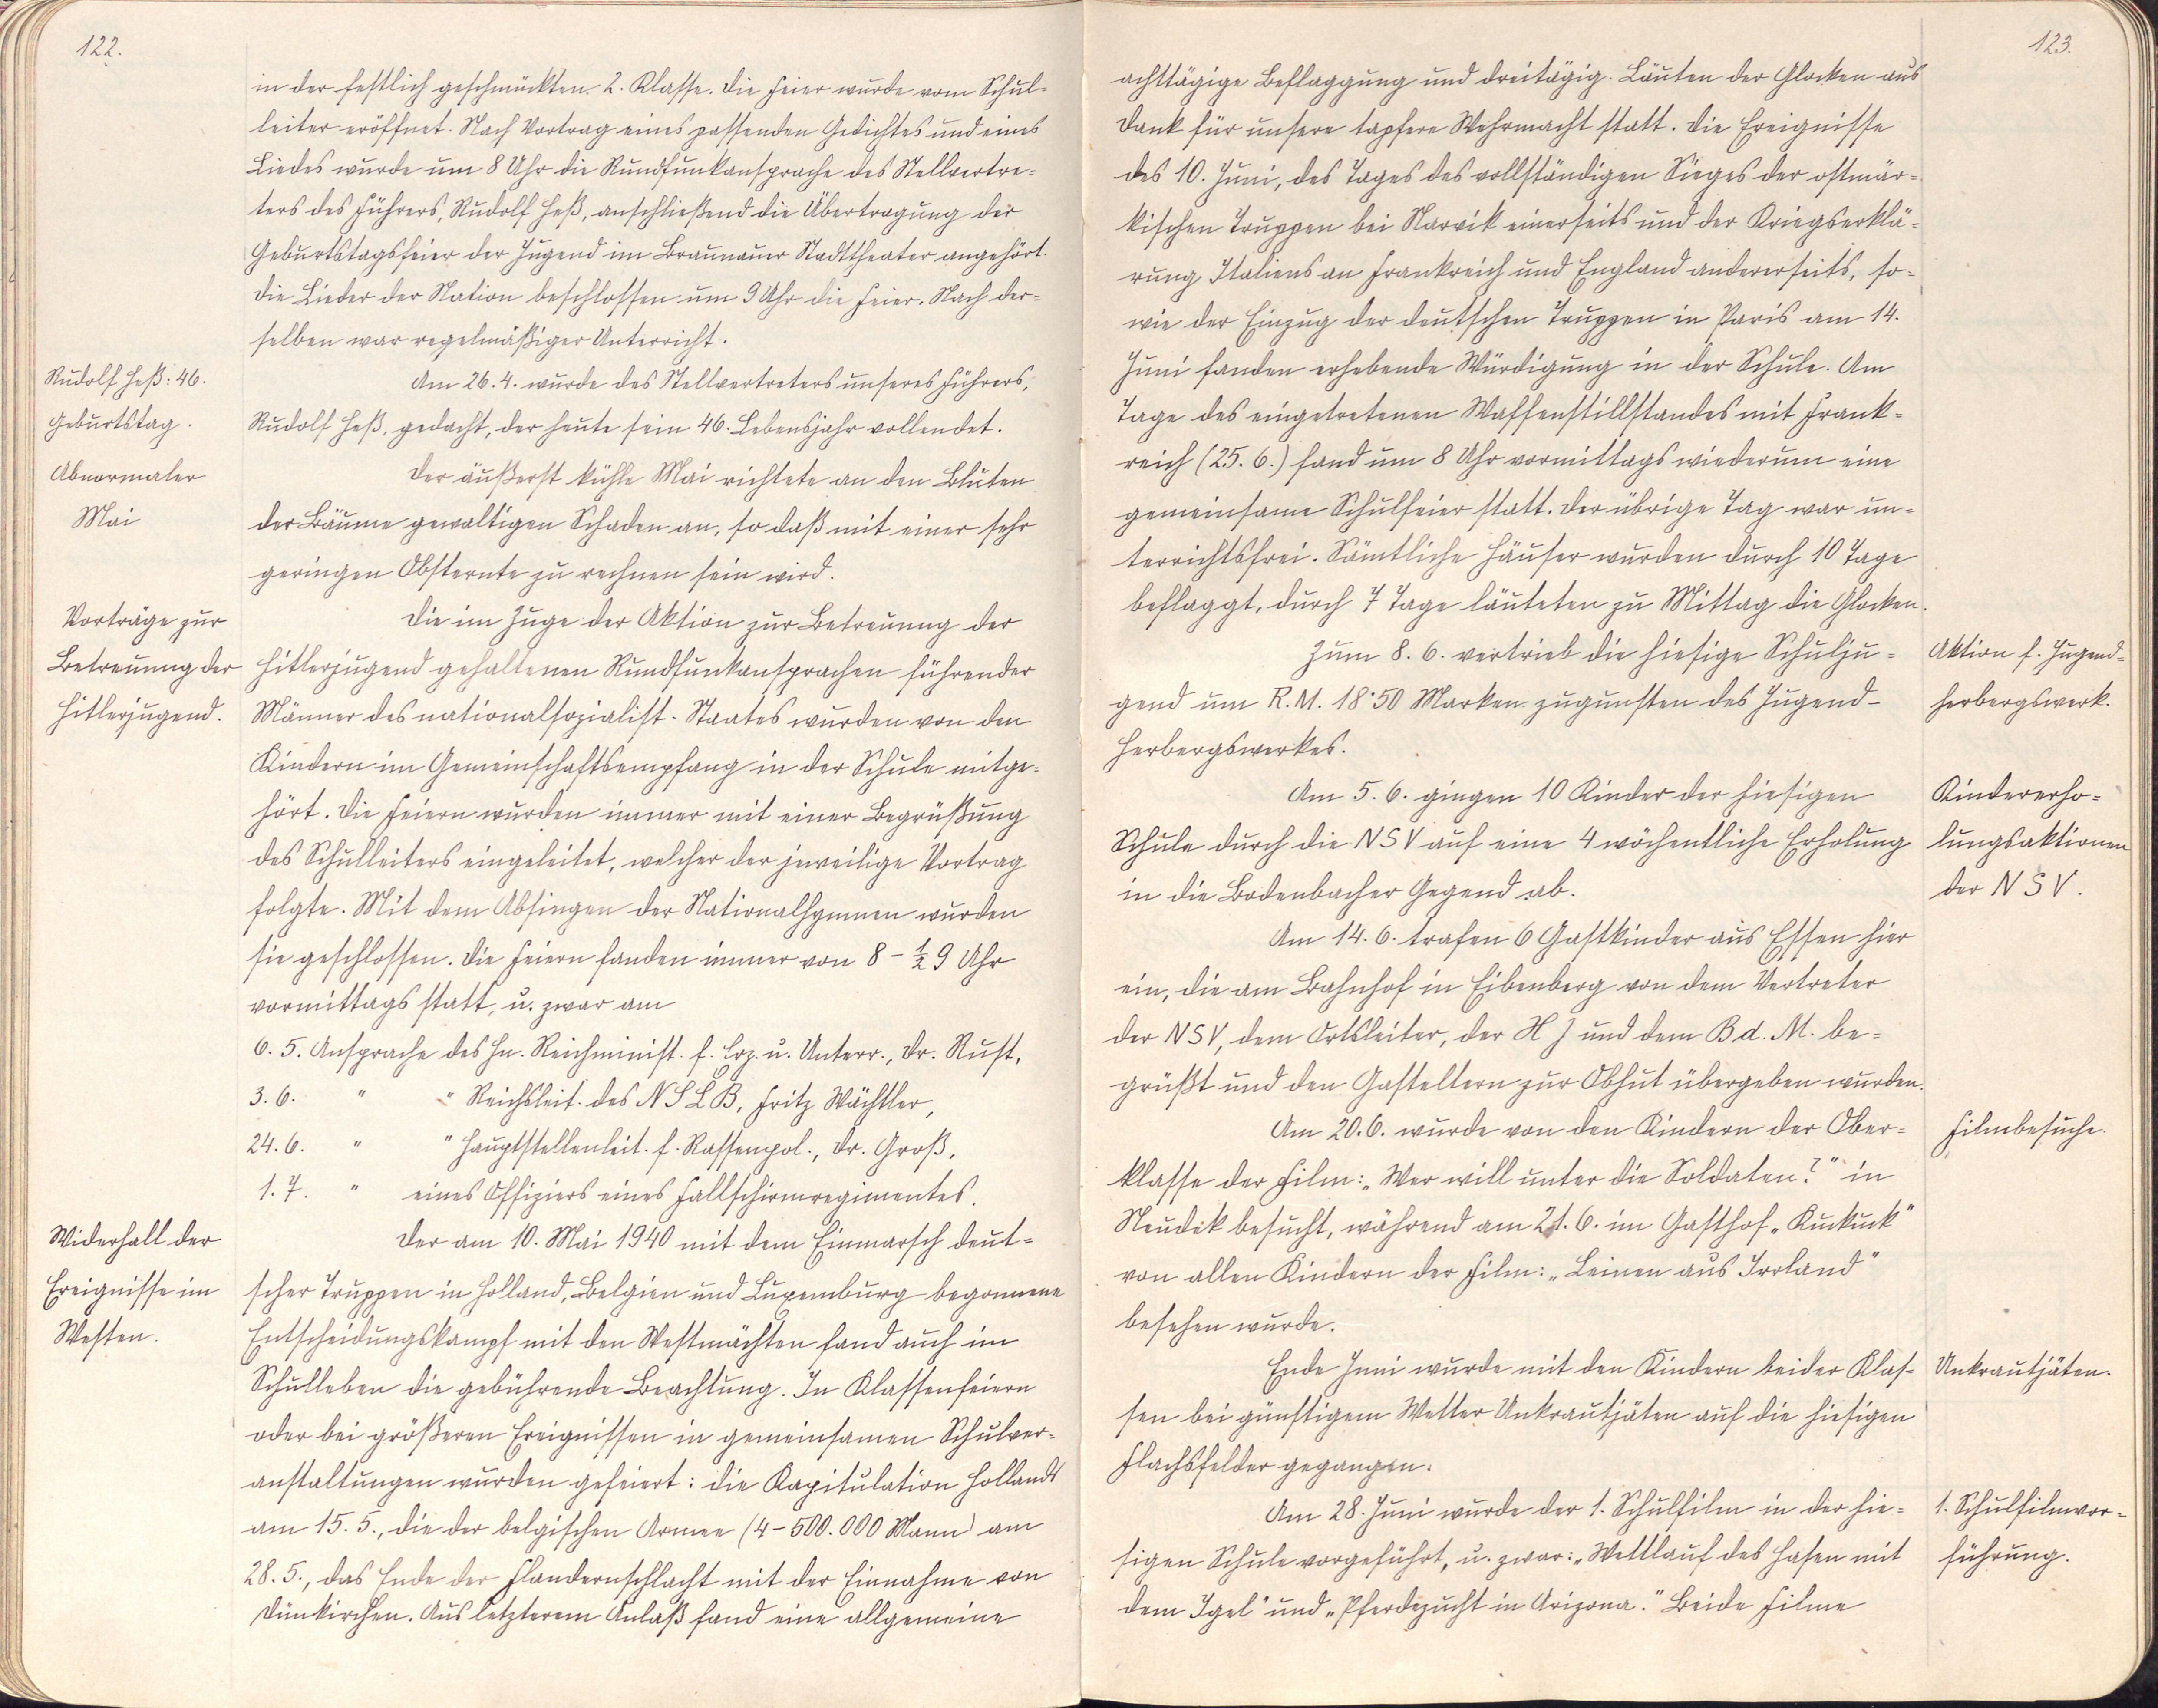 122.
in der festlich geschmückten 2. Klasse. Die Feier wurde vom Schul=
leiter eröffnet. Nach Vortrag eines passenden Gedichtes und eines
Liedes wurde um 8 Uhr die Rundfunkansprache des Stellvertre=
ters des Führers, Rudolf Heß, anschließend die Übertragung der
Geburtstagsfeier der Jugend im Braunauer Stadttheater angehört.
Die Lieder der Nation beschlossen um 9 Uhr die Feier. Nach der=
selben war regelmäßiger Unterricht.
Rudolf Heß: 46.
Geburtstag.
Am 26. 4. wurde des Stellvertreters unseres Führers,
Rudolf Heß, gedacht, der heute sein 46. Lebensjahr vollendet.
Abnormaler
Mai
Der äußerst kühle Mai richtete an den Blüten
der Bäume gewaltigen Schaden an, so daß mit einer sehr
geringen Obsternte zu rechnen sein wird.
Vorträge zur
Betreuung der
Hitlerjugend.
Die im Zuge der Aktion zur Betreuung der
Hitlerjugend gehaltenen Rundfunkansprachen führender
Männer des nationalsozialist. Staates wurden von den
Kindern im Gemeinschaftsempfang in der Schule mitge=
hört. Die Feiern wurden immer mit einer Begrüßung
des Schulleiters eingeleitet, welcher der jeweilige Vortrag
folgte. Mit dem Absingen der Nationalhymnen wurden
sie geschlossen. Die Feiern fanden immer von 8 – ½ 9 Uhr
vormittags statt, u. zwar am
6. 5. Ansprache des Hn. Reichminist. f. Erz. u. Unterr., Dr. Rust,
3. 6. " " Reichsleit. des N S L B, Fritz Wächtler,
24. 6. " " Hauptstellenleit. f. Rassenpol., Dr. Groß,
1. 7. " eines Offiziers eines Fallschirmregimentes.
Widerhall der
Ereignisse im
Westen.
Der am 10. Mai 1940 mit dem Einmarsch deut=
scher Truppen in Holland, Belgien und Luxemburg begonnene
Entscheidungskampf mit den Westmächten fand auch im
Schulleben die gebührende Beachtung. In Klassenfeiern
oder bei größeren Ereignissen in gemeinsamen Schulver=
anstaltungen wurden gefeiert: die Kapitulation Hollands
am 15. 5., die der belgischen Armee (4–500.000 Mann) am
28. 5., das Ende der Flandernschlacht mit der Einnahme von
Dünkirchen. Aus letzterem Anlaß fand eine allgemeine
123.
achttägige Beflaggung und dreitägig. Läuten der Glocken aus
Dank für unsere tapfere Wehrmacht statt. Die Ereignisse
des 10. Juni, des Tages des vollständigen Sieges der ostmär=
kischen Truppen bei Narvik einerseits und der Kriegserklä=
rung Italiens an Frankreich und England andererseits, so=
wie der Einzug der deutschen Truppen in Paris am 14.
Juni fanden erhebende Würdigung in der Schule. Am
Tage des eingetretenen Waffenstillstandes mit Frank=
reich (25. 6.) fand um 8 Uhr vormittags wiederum eine
gemeinsame Schulfeier statt. Der übrige Tag war un=
terrichtsfrei. Sämtliche Häuser wurden durch 10 Tage
beflaggt, durch 7 Tage läuteten zu Mittag die Glocken.
Zum 8. 6. vertrieb die hiesige Schulju=
gend um R.M. 18·50 Marken zugunsten des Jugend-
herbergswerkes.
Aktion f. Jugend=
herbergswerk.
Am 5. 6. gingen 10 Kinder der hiesigen
Schule durch die NSV auf eine 4 wöchentliche Erholung
in die Bodenbacher Gegend ab.
Kindererho=
lungsaktionen
der N S V.
Am 14. 6. trafen 6 Gastkinder aus Essen hier
ein, die am Bahnhof in Eibenberg von dem Vertreter
der NSV, dem Ortsleiter, der H J und dem B d. M. be=
grüßt und den Gasteltern zur Obhut übergeben wurden.
Am 20. 6. wurde von den Kindern der Ober=
klasse der Film: „Wer will unter die Soldaten?" in
Neudek besucht, während am 21. 6. im Gasthof „Kuckuck"
von allen Kindern der Film: „Leinen aus Irrland"
besehen wurde.
Filmbesuche.
Ende Juni wurde mit den Kindern beider Klas=
sen bei günstigem Wetter Unkrautjäten auf die hiesigen
Flachsfelder gegangen.
Unkrautjäten.
Am 28. Juni wurde der 1. Schulfilm in der hie=
sigen Schule vorgeführt, u. zwar: „Wettlauf des Hasen mit
dem Igel" und „Pferdezucht in Arizona." Beide Filme
1. Schulfilmvor=
führung.